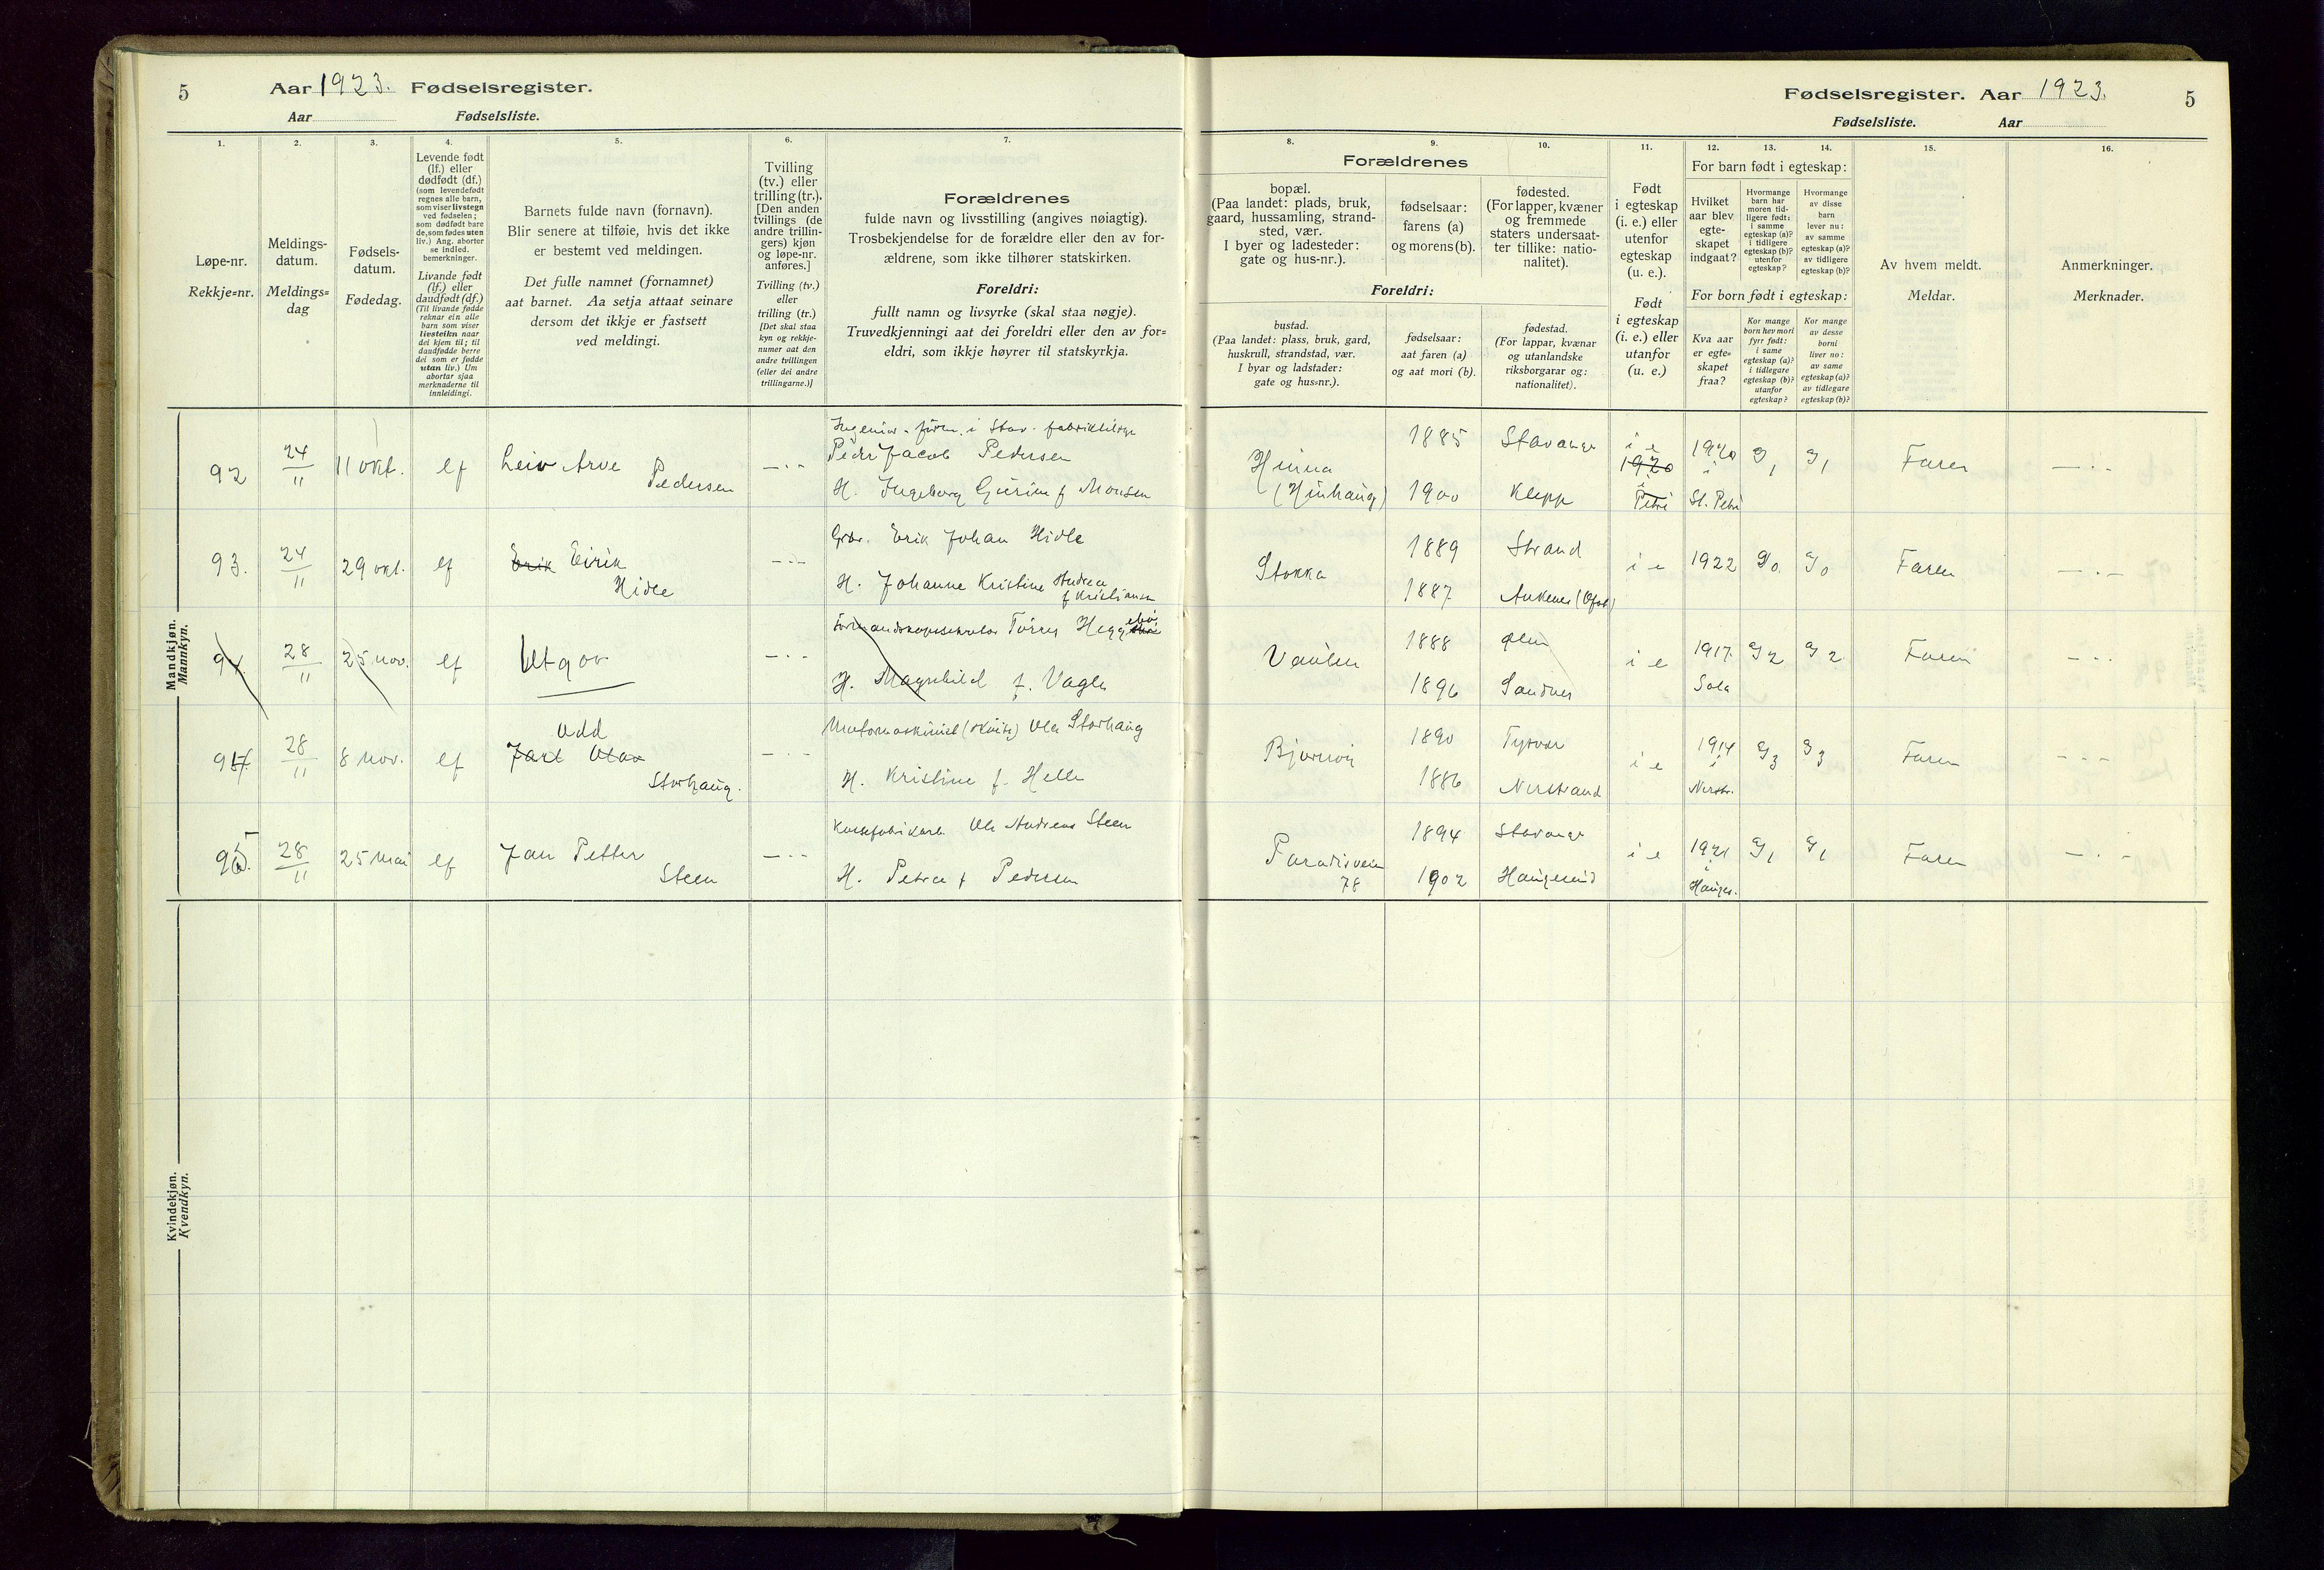 5
Aar 1923. Fødselsregister.
Aar Fødselsliste.
1.
Løpe-nr.
Rekkje=nr.
2.
Meldings-
datum.
Meldings=
dag
3.
Fødsels-
datum.
Fødedag.
4.
Levende født
(lf.) eller
dødfødt (df.)
(som levendefødt
regnes alle barn,
som viser livstegn
ved fødselen;
som dødfødt bare
de, som fødes uten
liv.) Ang. aborter
se indled.
bemerkninger.
Livande født
(lf.) eller
daudfødt (df.)
(Til livande fødde
reknar ein alle
barn som viser
livsteikn naar
dei kjem til; til
daudfødde berre
dei som er fødde
utan liv.) Um
abortar sjaa
merknaderne til
innleidingi.
5.
Barnets fulde navn (fornavn).
Blir senere at tilføie, hvis det ikke
er bestemt ved meldingen.
Det fulle namnet (fornamnet)
aat barnet. Aa setja attaat seinare
dersom det ikkje er fastsett
ved meldingi.
6.
Tvilling
(tv.) eller
trilling (tr.).
[Den anden
tvillings (de
andre trillin-
gers) kjøn
og løpe-nr.
anføres.]
Tvilling (tv.)
eller
trilling (tr.)
[Det skal staa
kyn og rekkje-
numer aat den
andre tvillingen
(eller dei andre
trillingarne.)]
7.
Forældrenes
fulde navn og livsstilling (angives nøiagtig).
Trosbekjendelse for de forældre eller den av for-
ældrene, som ikke tilhører statskirken.
Foreldri:
fullt namn og livsyrke (skal staa nøgje).
Truvedkjenningi aat dei foreldri eller den av for=
eldri, som ikkje høyrer til statskyrkja.
Mandkjøn.
Mannkyn.
92 24/11 11 okt. lf Leiv Arve Pedersen —·-
Peder Jacob Pedersen
H. Ingeborg Gurine f Monsen
93. 24/11 29 okt. lf Erik Eirik Hidle —·-
Gbr. Erik Johan Hidle
H. Johanne Kristine Andrea f Kristiansen
94. 28/11 25 nov. lf Utgår —·-
H. Magnhild f. Vagle
94 28/11 8 nov. lf Odd
Jarl Olav
Storhaug. —·-
Ola Storhaug
H. Kristine f. Helle
95. 28/11 25 mai lf Jan Petter
Steen —·-
Ole Andreas Steen
H. Petra f Pedersen
Kvindekjøn.
Kvendkyn.
Fødselsregister. Aar 1923. 5
Fødselsliste. Aar
8.
Forældrenes
bopæl.
(Paa landet: plads, bruk,
gaard, hussamling, strand-
sted, vær.
I byer og ladesteder:
gate og hus-nr.).
Foreldri:
bustad.
(Paa landet: plass, bruk, gard,
huskrull, strandstad, vær.
I byar og ladstader:
gate og hus=nr.).
9.
fødselsaar:
farens (a)
og morens (b).
fødselsaar:
aat faren (a)
og aat mori (b).
10.
fødested.
(For lapper, kvæner
og fremmede
staters undersaat-
ter tillike: natio-
nalitet).
fødestad.
(For lappar, kvænar
og utanlandske
riksborgarar og:
nationalitet).
11.
Født
i egteskap
(i. e.) eller
utenfor
egteskap
(u. e.).
Født
i egteskap
(i. e.) eller
utanfor
(u. e.)
12. 13. 14.
For barn født i egteskap:
Hvilket
aar blev
egte-
skapet
indgaat?
Hvormange
barn har
moren tid-
ligere født:
i samme
egteskap (a)?
i tidligere
egteskap (b)?
utenfor
egteskap?
Hvormange
av disse
barn
lever nu:
av samme
egteskap (a)?
av tidligere
egteskap (b)?
For born født i egteskap:
Kva aar
er egte=
skapet
fraa?
Kor mange
born hev mori
fyrr født:
i same
egteskap (a)?
i tidlegare
egteskap (b)?
utanfor
egteskap?
Kor mange
av desse
borni
liver no:
av same
egteskap (a)?
av tidlegare
egteskap (b)?
15.
Av hvem meldt.
Meldar.
16.
Anmerkninger.
Merknader.
Hinna (Hinhaug) 1885 Stavanger
1900 Klepp
i e
1920
i
Petri
1920
i
St. Petri
a/1 a/1 Faren —·-
Stokka 1889 Strand
1887 Ankenes (Ofot)
i e 1922 a/0 a/0 Faren —·-
Vaulen 1888 Ølen
1896 Sandnes
i e 1917. Sola a/2 a/2 Faren —·-
1890 Tysvær
1886 Nerstrand
i e 1914 i Nerstr. a/3 a/3 Faren ---
Paradisveien 78 1894 Stavanger
1902 Haugesund
i e 1921 i Hauges. a/1 a/1 Faren —·-